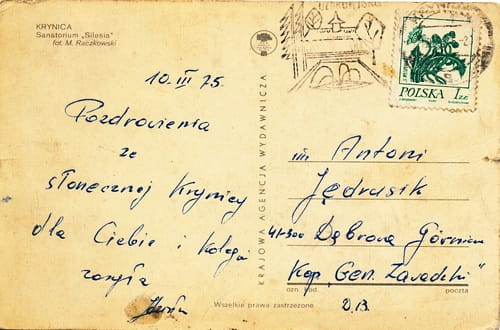 KRYNICA
Sanatorium „Silesia"
fot. M. Raczkowski
10. III 75.
Pozdrowienia
ze
słonecznej Krynicy
dla Ciebie i kolegi
KRAJOWA AGENCJA WYDAWNICZA
POLSKA 1 ZŁ
Antoni
Jędrusik
41-300 Dąbrowa Górnicza
Kop. „Gen. Zawadzki"
ozn. kod. poczta
Wszelkie prawa zastrzeżone